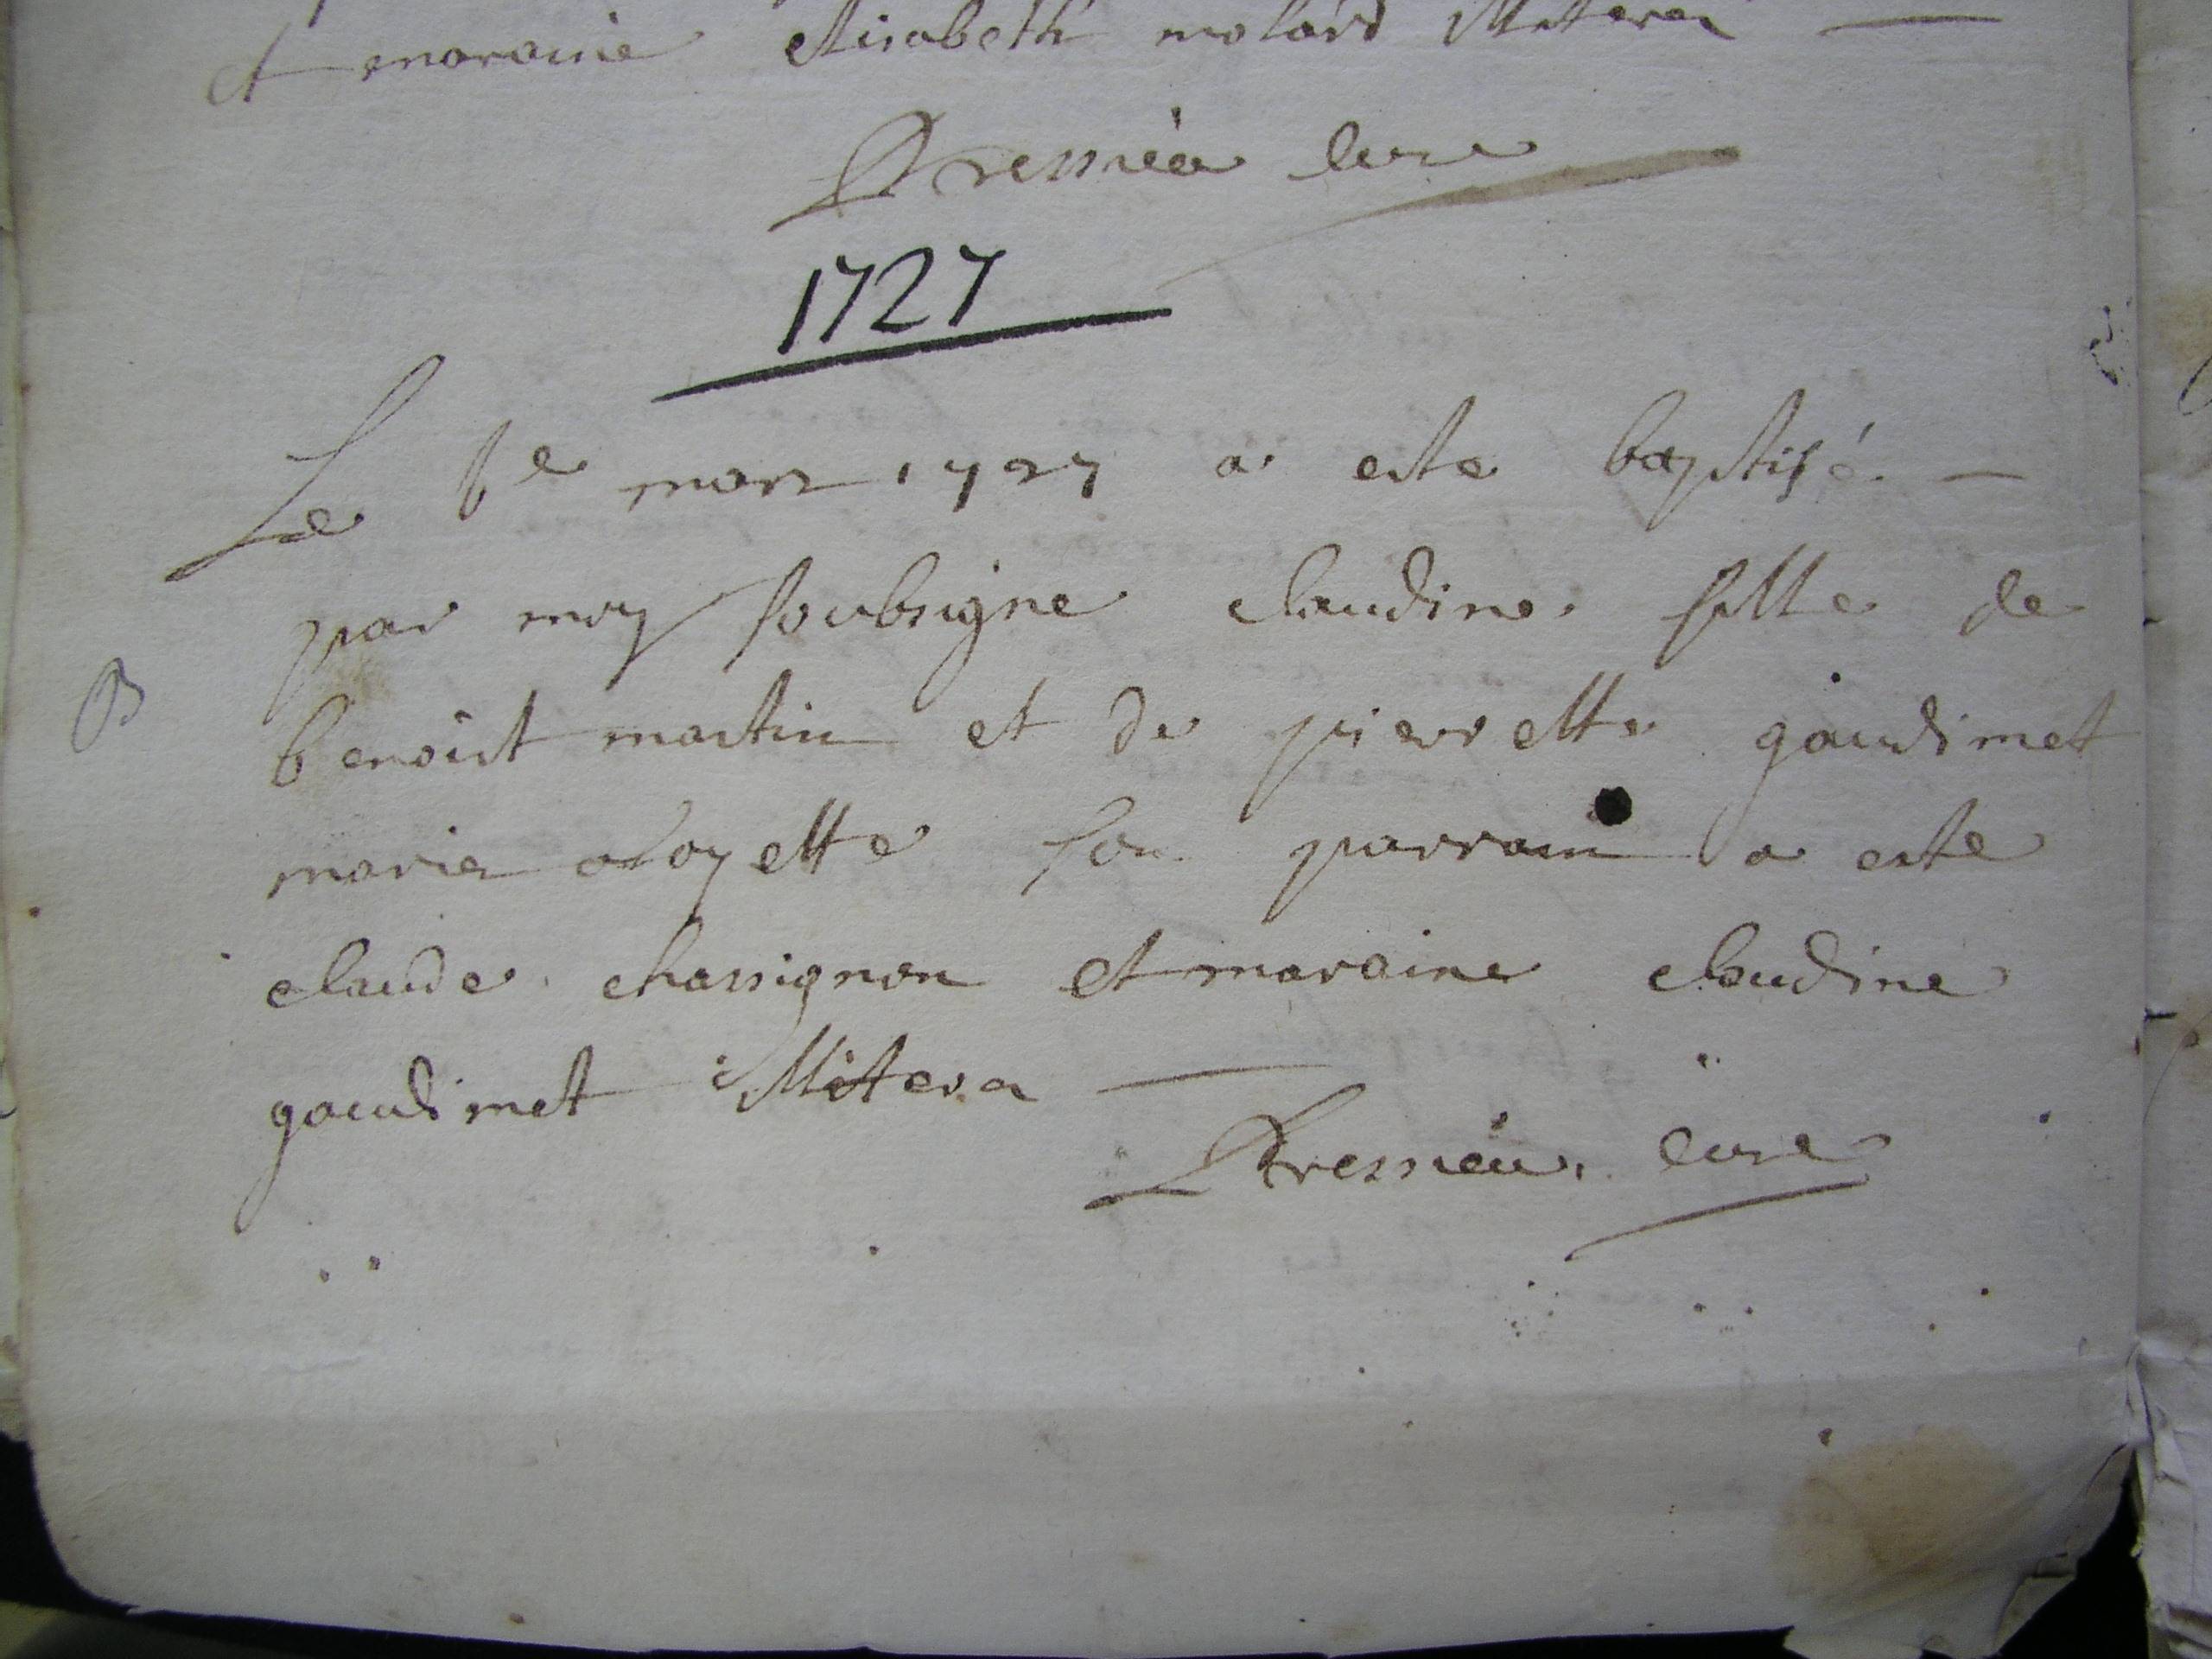 et maraine elisabeth molard illittera
Dressieu cure
1727
Le 6e mars 1727 a este baptisé
par moy soubsigne claudine fille de
B
benoist martin et de pierrette gaudimet
maries a Loyette son parrain a este
claude chassignon et maraine claudine
gaudimet illitera
Dressieu cure